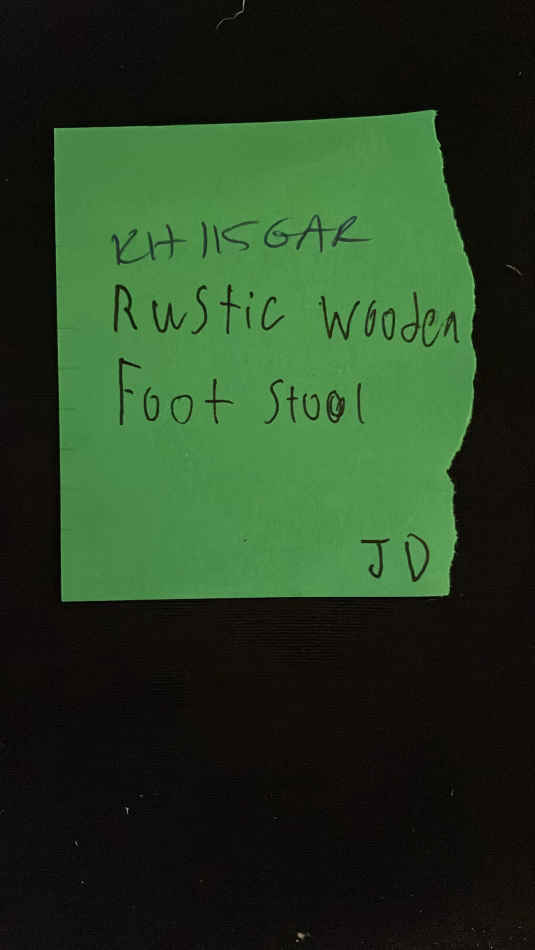 RH115GAR
Rustic Wooden
Foot Stool
JD